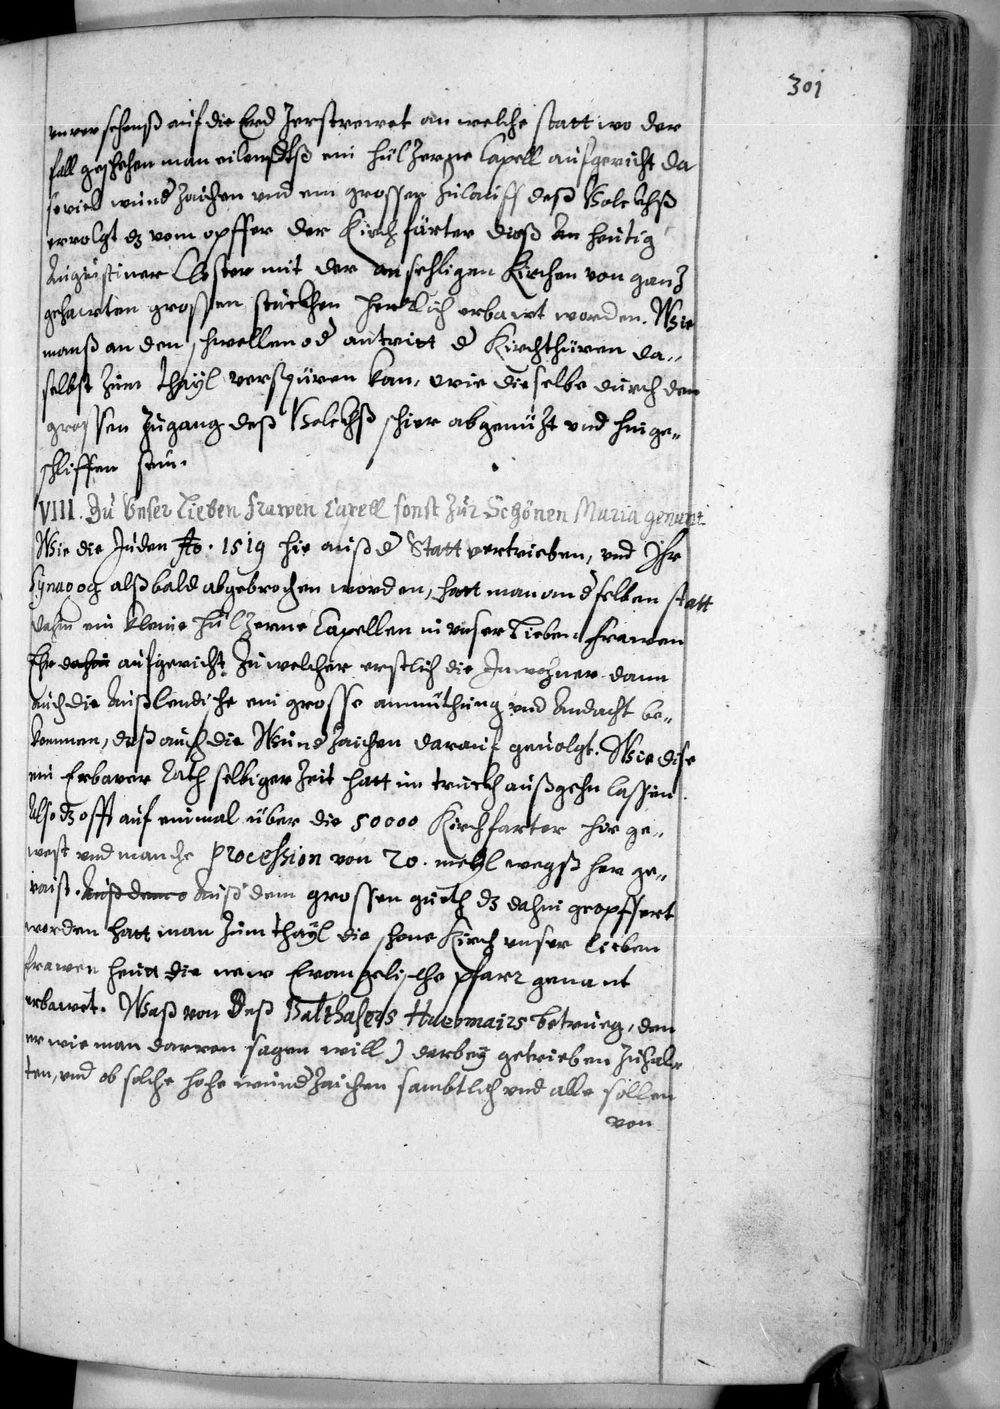 301
unversehenß auf die Erd Zerstrewet an welche statt wo der
fall geschehen man eilendtß ein hülzerne Capell aufgericht da
soviel wundzaichen und ein grosser Zulauff deß Volckhß
ervolgt dz vom opffer der Kirchfärter dieß an heutig
Augustiner Closter mit der ansehligen Kirchen von ganz
gehawten grossen stuckhen herrlich erbawt worden. Wie
manß an den schwellen od antritt d Kirchthüren da„
selbst zum thayl verspüren kan, wie dieselbe durch den
grossen zugang deß Volckhß schier abgenüzt und hinge„
schliffen sein.
VIII. Zu Unser Lieben frawen Capell sonst zur Schönen Maria genant
Wie die Juden Ao. 1519 hie auß d Statt vertrieben, und Ihr
Synagog alßbald abgebrochen worden, hatt man an dselben statt
dahin ein kleine hülzerne Capellen in unser Lieben frawen
Ehr dahin aufgericht zu welcher erstlich die Inwohner dann
auch die Außlendische ein grosse anmüthung und Andacht be„
kommen, daß auch die Wundzaichen darauf gevolgt. Wie dise
ein Erbarer Rath selbiger Zeit hatt im truckh außgehn lassen
Also dz offt auf einmal über die 50000 Kirchfarter hir ge„
west und manche procession von 20. meyl wegß her ge„
raist. Auß dem Auß dem grossen gueth dz dahin geopffert
worden hatt man zum thayl die schone Kirch unser lieben
frawen heut die new Evangelische pfarr genant
erbawet. Waß von deß Balthasers Huebmairs betrueg, den
er wie man darvon sagen will) darbey getrieben zuhal„
ten, und ob solche hohe wundzaichen sambtlich und alle sollen
von